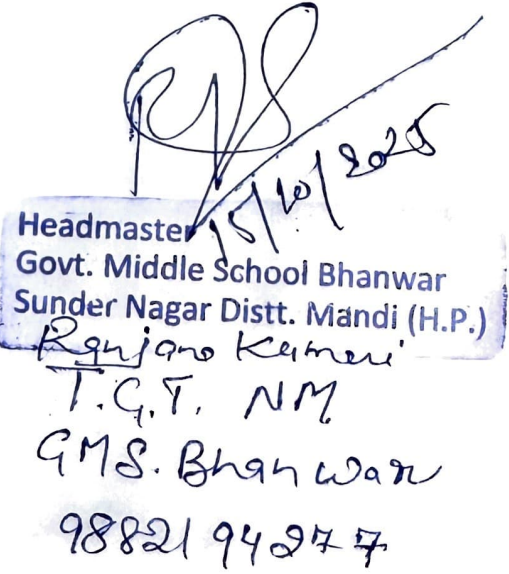 15/10/2025
Headmaster
Govt. Middle School Bhanwar
Sunder Nagar Distt. Mandi (H.P.)
Ranjana Kumari
T.G.T. NM
GMS. Bhanwar
98821 94277